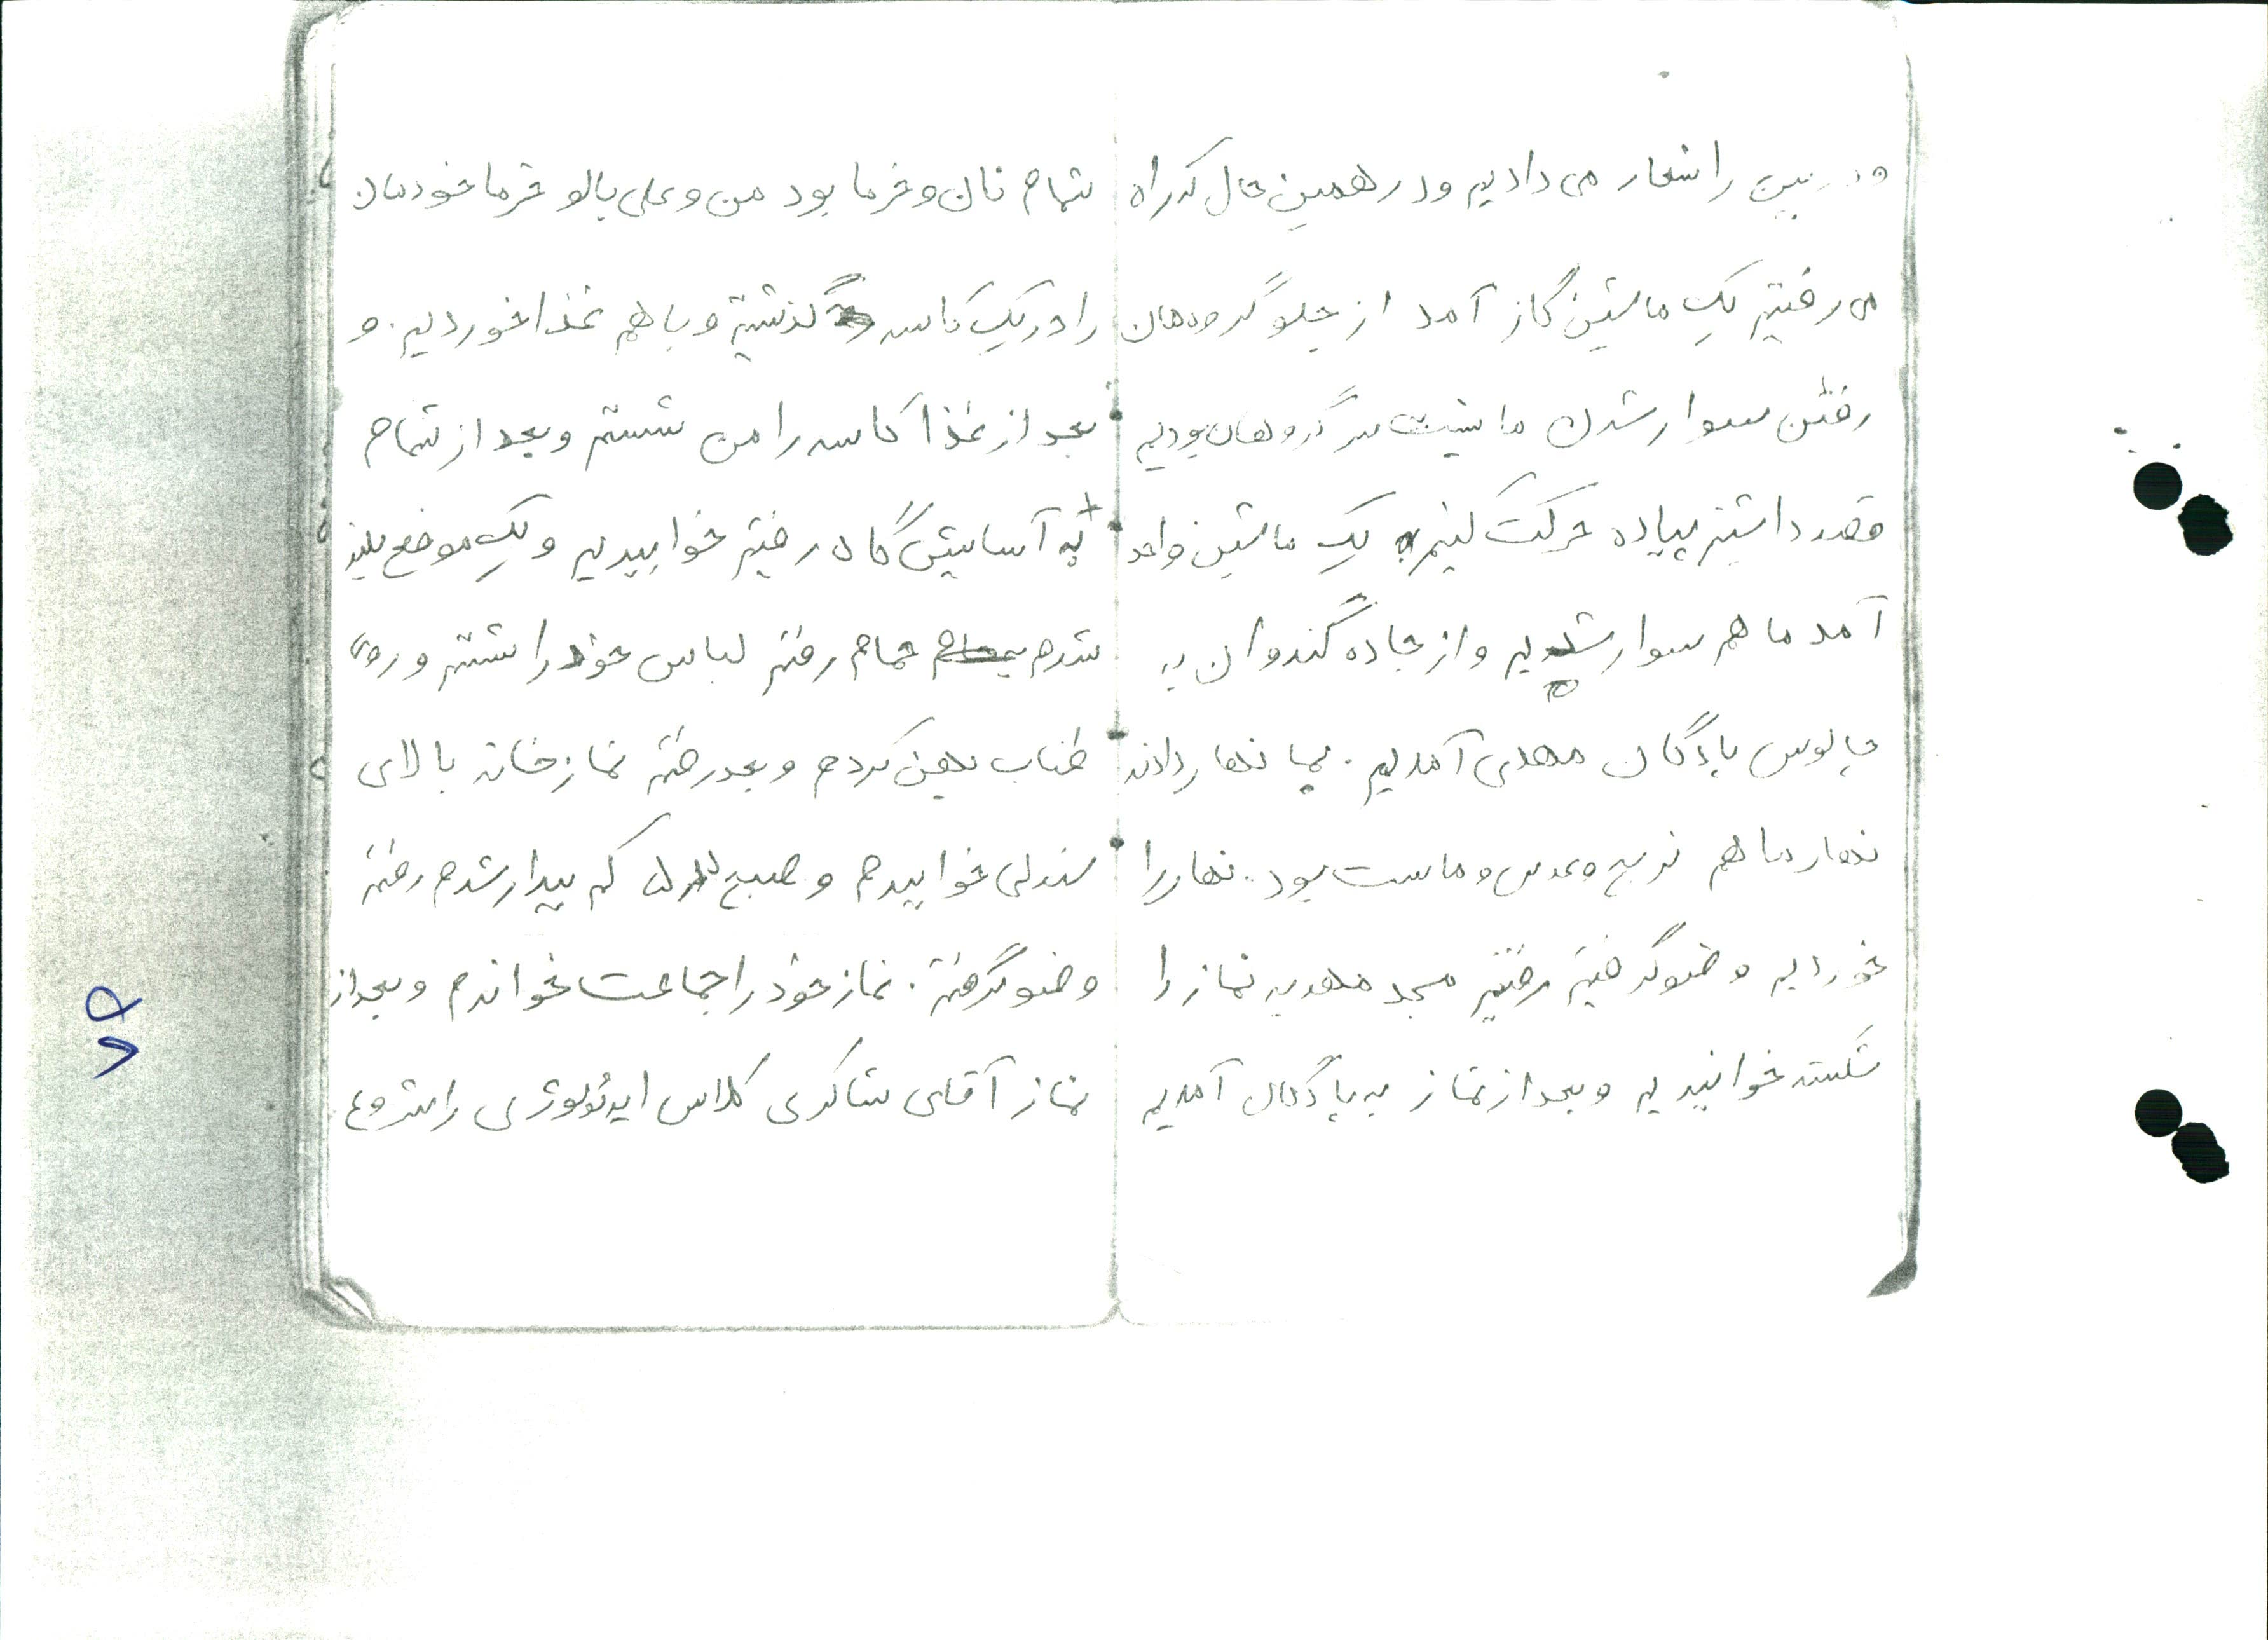 و در بین راه شعار می دادیم و در همین حال که راه
می رفتیم یک ماشین گاز آمد از جلو گروهان
رفتن سوار شدن ما سر گروهان بودیم
قصد داشتیم پیاده حرکت کنیم یک ماشین واحد
آمد ما هم سوار شدیم و از جاده گندوان به
چالوس پادگان مهدی آمدیم. بما نهار دادند
نهار ما هم نربج و عدس و ماست بود. نهار را
خوردیم وضو گرفتیم رفتیم مسجد مهدیه نماز را
شکسته خواندیم و بعد از نماز به پادگان آمدیم
شام نان و خرما بود من و علی بالو خرما خودمان
را در یک کاسه گذشتیم و با هم غذا خوردیم. و
بعد از غذا کاسه را من شستم و بعد از شام
به آسایش گاه رفتیم خوابیدیم و یک موضع بلند
شدم حمام رفتم لباس خود را شستم و روی
طناب پهن کردم و بعد رفتم نماز خانه بالای
صندلی خوابیدم و صبح که بیدار شدم رفتم
وضو گرفتم. نماز خود را جماعت خواندم و بعد از
نماز آقای شاکری کلاس ایدئولوژی را شروع
۷۶